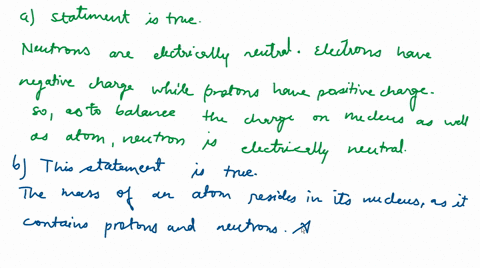 a) statement is true.
Neutrons are electrically neutral. Electrons have
negative charge while protons have positive charge.
so, as to balance the charge on nucleus as well
as atom, neutron is electrically neutral.
b) This statement is true.
The mass of an atom resides in its nucleus, as it
contains protons and neutrons.